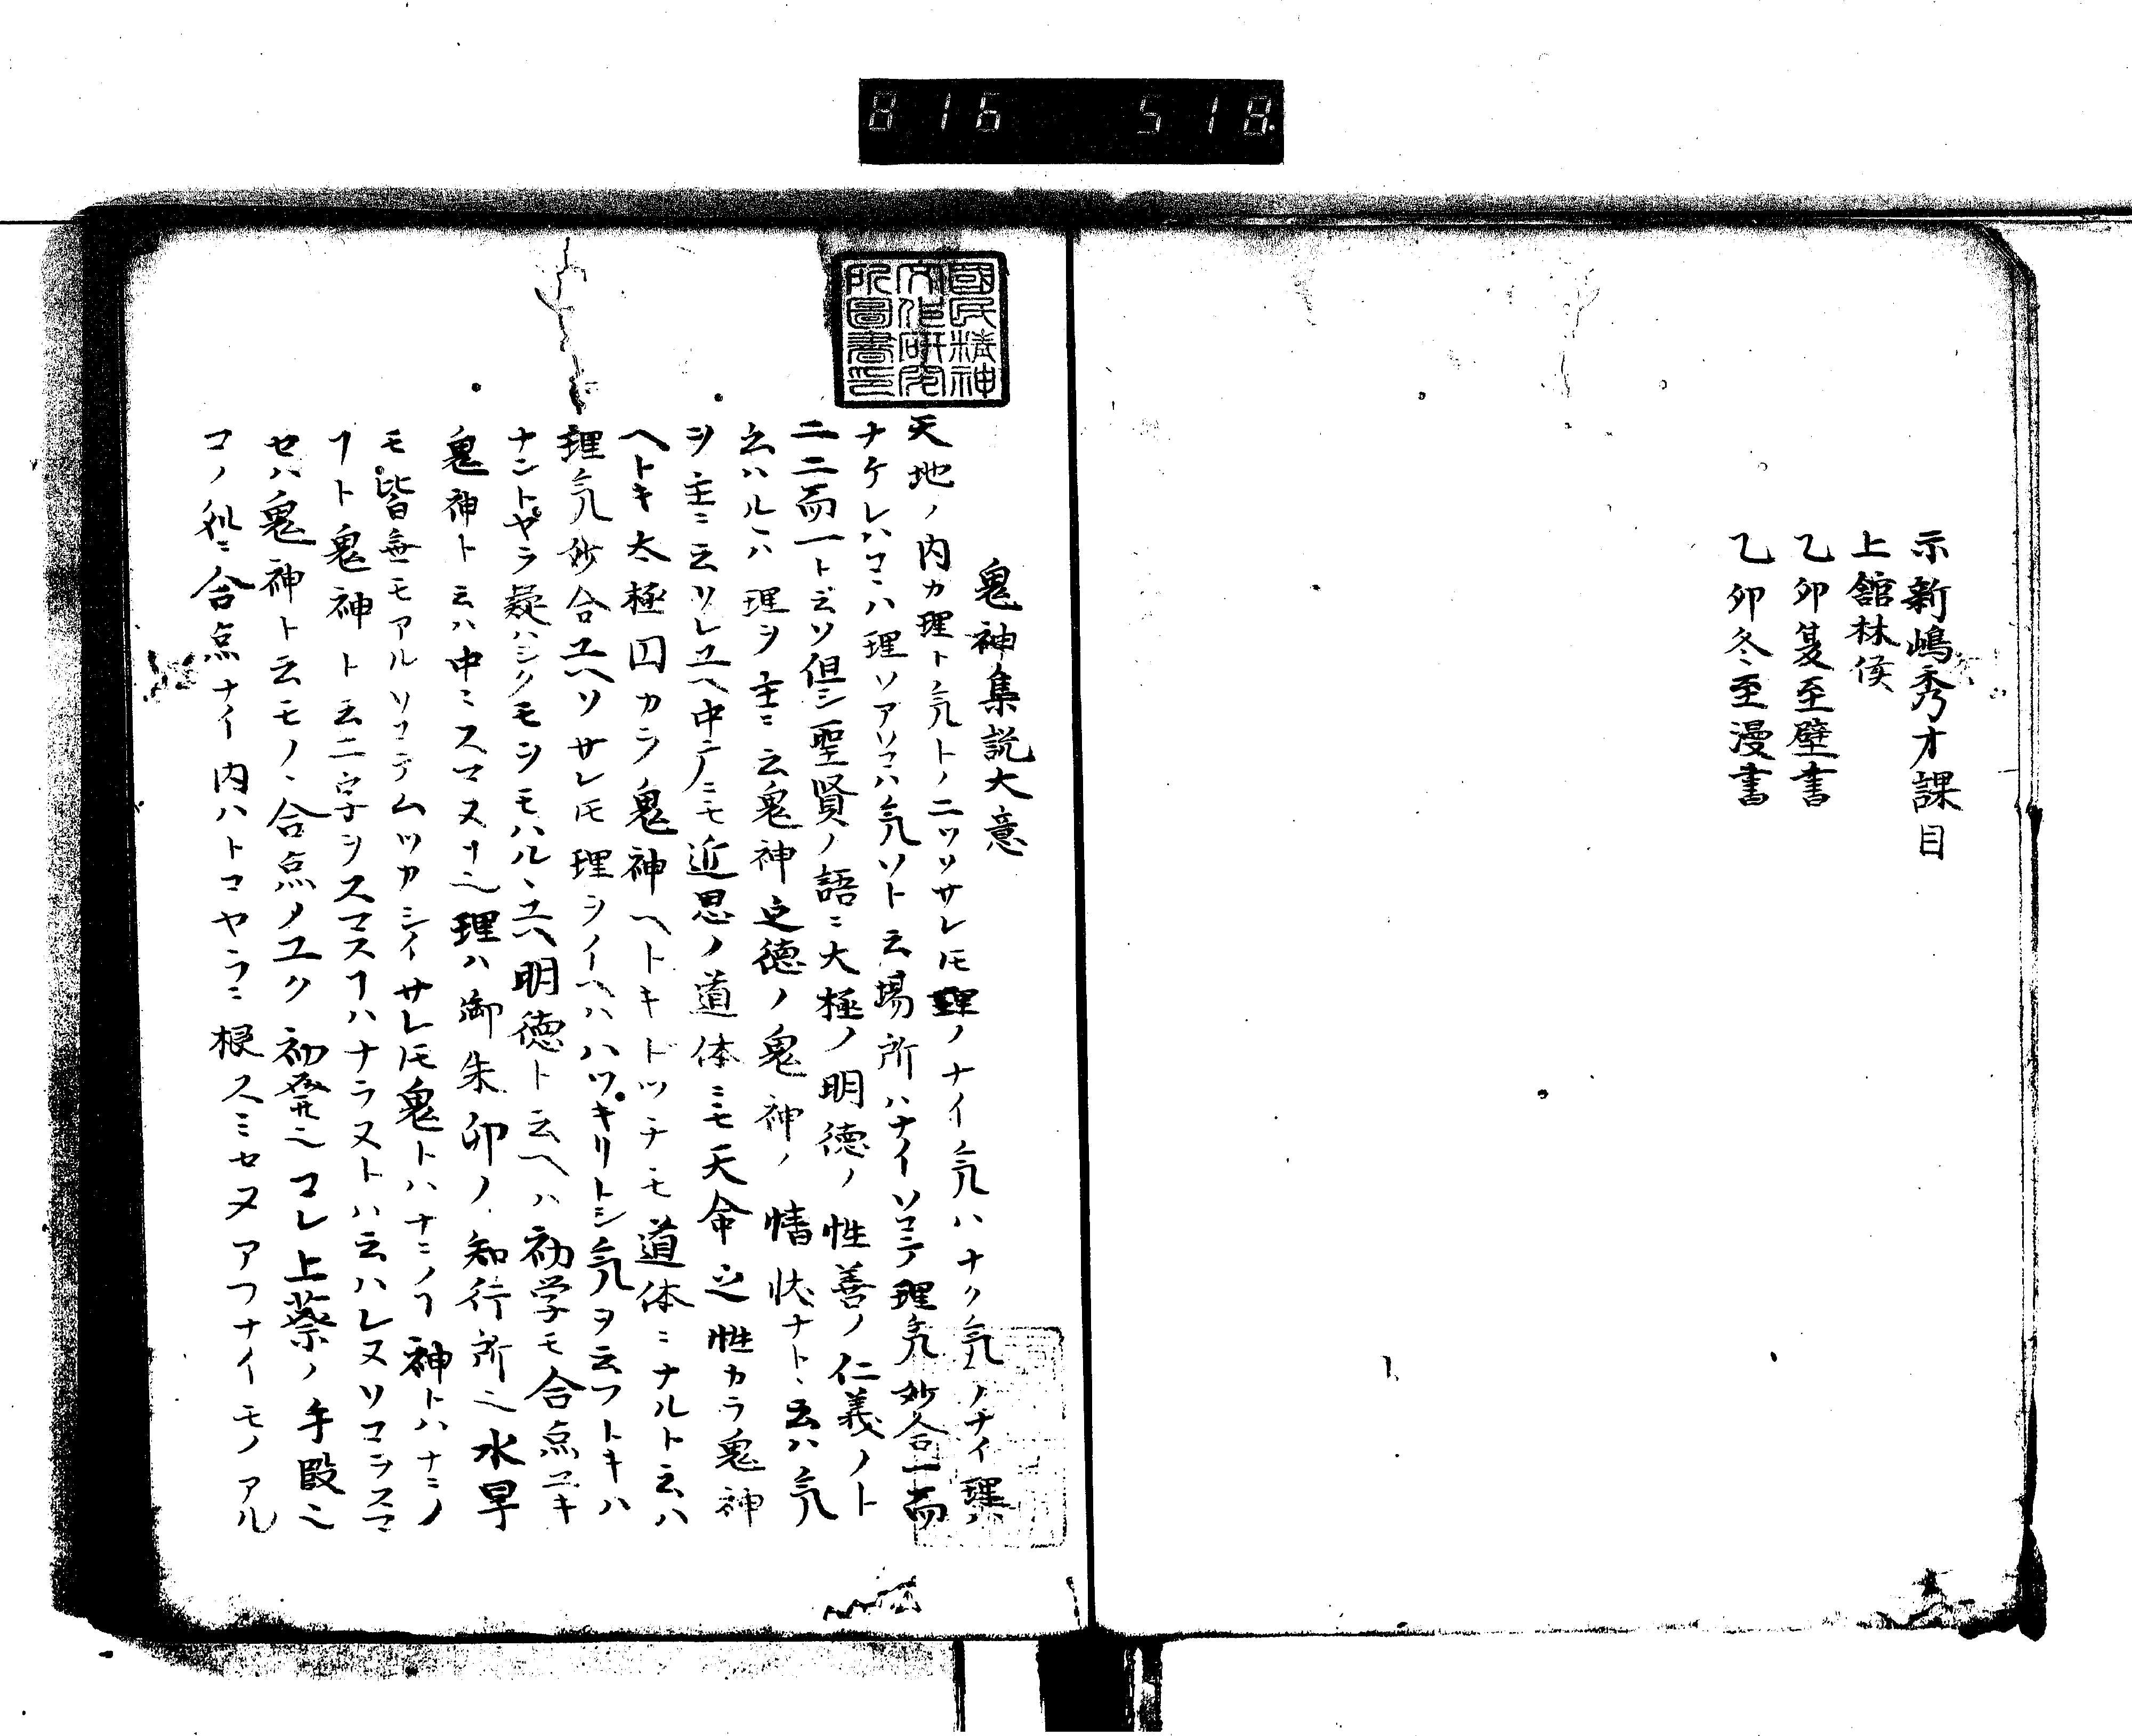 816 518
示新嶋秀才課目
上舘林侯
乙卯夏至壁書
乙卯冬至漫書
國民精神
文化研究
所圖書印
鬼神集説大意
天地ノ内カ理ト氣トノ二ツソサレㇳモ理ノナイ氣ハナク氣ノナイ理ハ
ナケレハコヽハ理ソアソコハ氣ソト云場所ハナイソコテ理氣妙合一而
二二而一ト云ソ但シ聖賢ノ語ニ大極ノ明徳ノ性善ノ仁義ノト
云ハルヽハ理ヲ主ニ云鬼神之徳ノ鬼神ノ情状ナトヽ云ハ氣
ヲ主ニ云ソレユヘ中庸ニモ近思ノ道体ニモ天命之性カラ鬼神
ヘトキ太極図カラ鬼神ヘトキドツチモ道体ニナルト云ハ
理氣妙合ユヘソサレㇳモ理ヲイヘハハツキリトシ氣ヲ云フトキハ
ナントヤラ疑ハシクモヲモハルヽユヘ明徳ト云ヘハ初学モ合点ユキ
鬼神ト云ハ中ニスマヌヿ也理ハ御朱印ノ知行所也水旱
モ皆無モアルソコテムツカシイサレㇳモ鬼トハナニノヿ神トハナニノ
ヿト鬼神ト云二字ヲスマスヿハナラヌトハ云ハレヌソコヲスマ
セハ鬼神ト云モノヽ合点ノユク初発也コレ上蔡ノ手段也
コノ処ニ合点ナイ内ハトコヤラニ根スミセヌアフナイモノアル